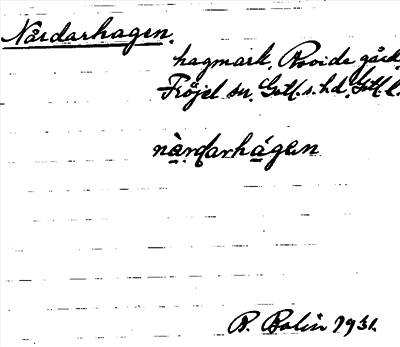 Nårdarhagen.
hagmark, Rovide gård,
Fröjel sn, Gotl. s. hd, Gotl. l.
nà̱rdarhá̱gen
R. Bolin 1931.